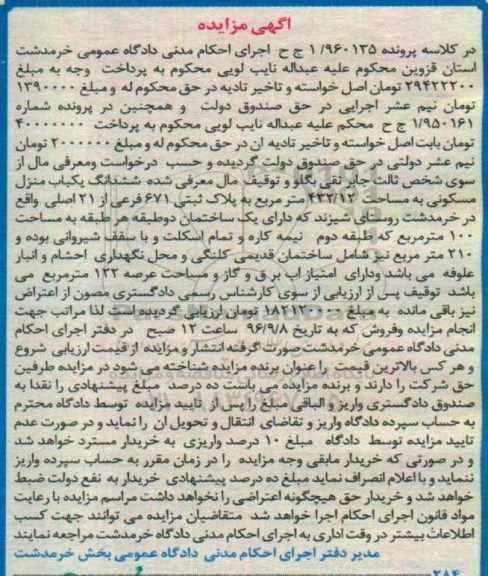 آگهی مزایده
در کلاسه پرونده ۹۶۰۱۳۵/ ۱ ج ح اجرای احکام مدنی دادگاه عمومی خرمدشت
استان قزوین محکوم علیه عبداله نایب لویی محکوم به پرداخت وجه به مبلغ
۲۹۴۲۲۲۰۰ تومان اصل خواسته و تاخیر تادیه در حق محکوم له و مبلغ ۱۳۹۰۰۰۰
تومان نیم عشر اجرایی در حق صندوق دولت و همچنین در پرونده شماره
۱/۹۵۰۱۶۱ ج ح محکم علیه عبداله نایب لویی محکوم به پرداخت ۴۰۰۰۰۰۰۰
تومان بابت اصل خواسته و تاخیر تادیه ان در حق محکوم له و مبلغ ۲۰۰۰۰۰۰ تومان
نیم عشر دولتی در حق صندوق دولت گردیده و حسب درخواست ومعرفی مال از
سوی شخص ثالث جابر تقی بگلو و توقیف مال معرفی شده ششدانگ یکباب منزل
مسکونی به مساحت ۴۳۲/۱۲ متر مربع به پلاک ثبتی ۶۷۱ فرعی از ۲۱ اصلی واقع
در خرمدشت روستای شیزند که دارای یک ساختمان دوطبقه هر طبقه به مساحت
۱۰۰ مترمربع که طبقه دوم نیمه کاره و تمام اسکلت و با سقف شیروانی بوده و
۲۱۰ متر مربع نیز شامل ساختمان قدیمی کلنگی و محل نگهداری احشام و انبار
علوفه می باشد ودارای امتیاز اب بر ق و گاز و مساحت عرصه ۱۲۲ مترمربع می
باشد توقیف پس از ارزیابی از سوی کارشناس رسمی دادگستری مصون از اعتراض
نیز باقی مانده به مبلغ تومان ارزیابی گردیده است لذا مراتب جهت
انجام مزایده وفروش که به تاریخ ۹۶/۹/۸ ساعت ۱۲ صبح در دفتر اجرای احکام
مدنی دادگاه عمومی خرمدشت صورت گرفته انتشار و مزایده از قیمت ارزیابی شروع
و هر کس بالاترین قیمت را عنوان برنده مزایده شناخته می شود در مزایده طرفین
حق شرکت را دارند و برنده مزایده می باست ده درصد مبلغ پیشنهادی را نقدا به
صندوق دادگستری واریز و الباقی مبلغ را پس از تایید مزایده توسط دادگاه محترم
به حساب سپرده دادگاه واریز و تقاضای انتقال و تحویل ان را نماید و در صورت عدم
تایید مزایده توسط دادگاه مبلغ ۱۰ درصد واریزی به خریدار مسترد خواهد شد
و در صورتی که خریدار مابقی وجه مزایده را در زمان مقرر به حساب سپرده واریز
ننماید و با اعلام انصراف نماید مبلغ ده درصد پیشنهادی خریدار به نفع دولت ضبط
خواهد شد و خریدار حق هیچگونه اعتراضی را نخواهد داشت مراسم مزایده با رعایت
مواد قانون اجرای احکام اجرا خواهد شد متقاضیان مزایده می توانند جهت کسب
اطلاعات بیشتر در وقت اداری به اجرای احکام مدنی دادگاه خرمدشت مراجعه نمایند
مدیر دفتر اجرای احکام مدنی دادگاه عمومی بخش خرمدشت
۲۸۴